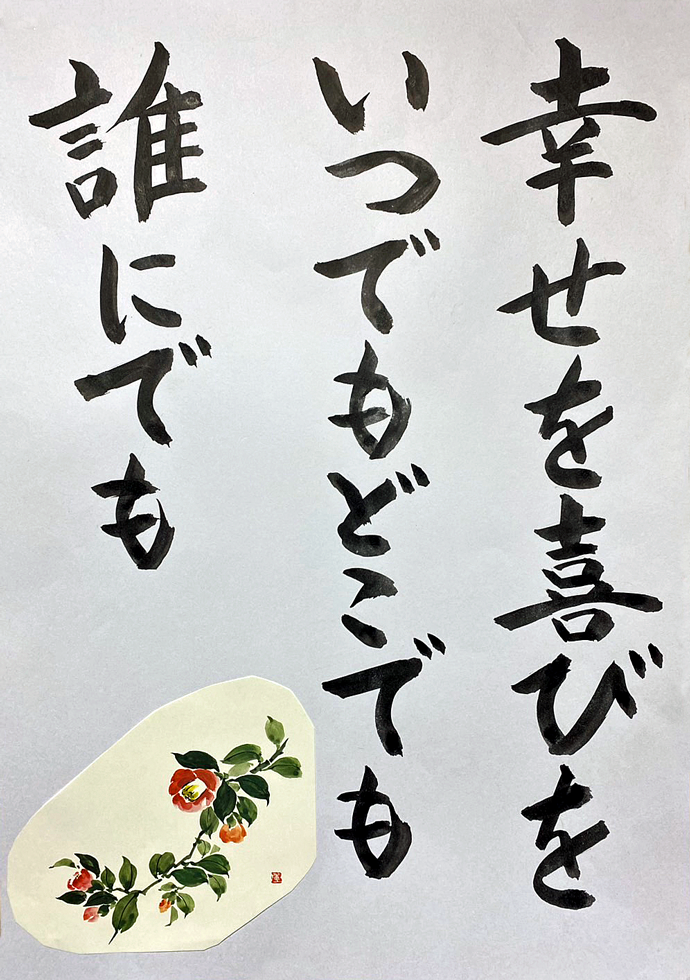 幸せを喜びを
いつでもどこでも
誰にでも